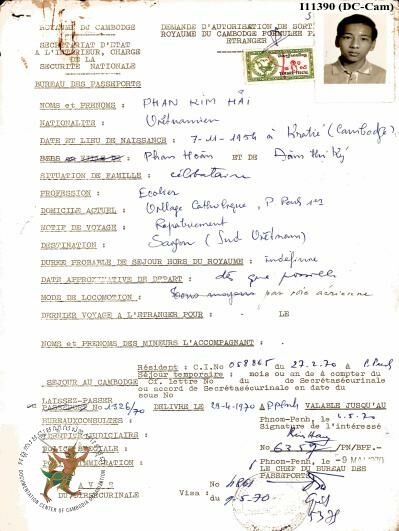 I11390 (DC-Cam)
ROYAUME DU CAMBODGE
DEMANDE D'AUTORISATION DE SORT
ROYAUME DU CAMBODGE FORMULEE P
ETRANGER
SECRETARIAT D'ETAT
A L'INTERIEUR, CHARGE
DE LA
SECURITE NATIONALE
BUREAU DES PASSEPORTS
NOMS et PRENOMS : PHAN KIM HẢI
NATIONALITE : Vietnamien
DATE ET LIEU DE NAISSANCE : 7-11-1954 à Kratié (Cambodge)
Phan Hoàn ET DE
SITUATION DE FAMILLE : célibataire
PROFESSION : Ecolier
DOMICILE ACTUEL : Village Catholique, P. Penh
MOTIF DE VOYAGE : Rapatriement
DESTINATION : Saigon (Sud Vietnam)
DUREE PROBABLE DE SEJOUR HORS DU ROYAUME : indéfinie
DATE APPROXIMATIVE DE DEPART : dès que possible
MODE DE LOCOMOTION : Tous moyens par voie aérienne
DERNIER VOYAGE A L'ETRANGER POUR : - LE
NOMS et PRENOMS DES MINEURS L'ACCOMPAGNANT :
Résident : C.I.No 058865 du 27.2.70 à P.Penh
Séjour temporaire : mois ou an de à compter du
SEJOUR AU CAMBODGE Cf. lettre No du de Secrétaséurinale
ou accord de Secrétaséurinale en date du
sous No
LAISSEZ-PASSER
PASSEPORT No 1326/70 DELIVRE LE 29-4-1970 A P.Penh VALABLE JUSQU'AU
BUREAUXCONSULTES :
Phnom-Penh, le
Signature de l'intéressé
IDENTITE JUDICIAIRE
POLICE SPECIALE
No 6359 /PN/BPP.-
IMMIGRATION
Phnom-Penh, le - 9 MAI 1970
LE CHEF DU BUREAU DES
PASSEPORTS
AVIS
DU SECURINALE
Visa :
No
du 9-5-70
DOCUMENTATION CENTER OF CAMBODIA